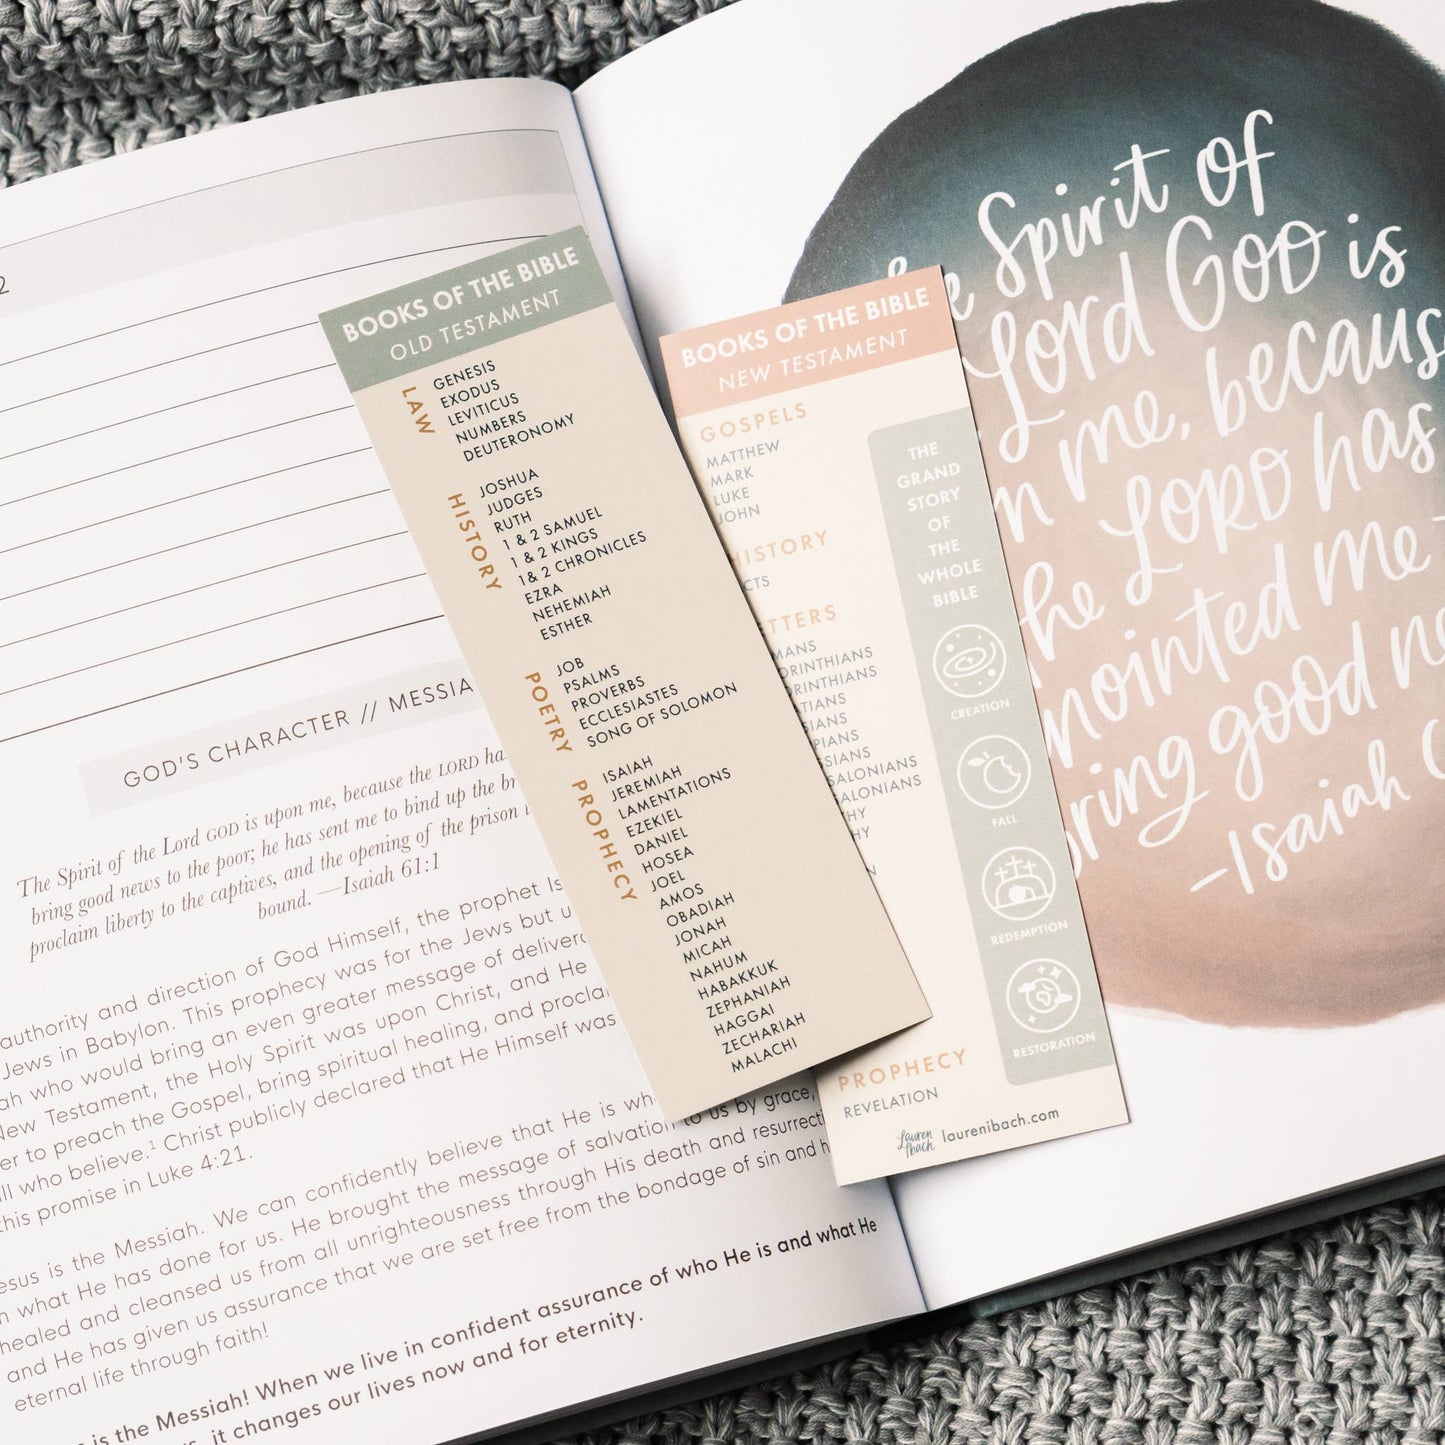 2
GOD'S CHARACTER // MESSIA
The Spirit of the Lord GOD is upon me, because the LORD ha
bring good news to the poor; he has sent me to bind up the br
proclaim liberty to the captives, and the opening of the prison
bound. —Isaiah 61:1
authority and direction of God Himself, the prophet Is
Jews in Babylon. This prophecy was for the Jews but u
ah who would bring an even greater message of delivera
New Testament, the Holy Spirit was upon Christ, and He
er to preach the Gospel, bring spiritual healing, and proclai
ll who believe.¹ Christ publicly declared that He Himself was
this promise in Luke 4:21.
esus is the Messiah. We can confidently believe that He is wh
n what He has done for us. He brought the message of salvation to us by grace,
healed and cleansed us from all unrighteousness through His death and resurrecti
and He has given us assurance that we are set free from the bondage of sin and h
eternal life through faith!
is the Messiah! When we live in confident assurance of who He is and what He
us, it changes our lives now and for eternity.
BOOKS OF THE BIBLE
OLD TESTAMENT
LAW
GENESIS
EXODUS
LEVITICUS
NUMBERS
DEUTERONOMY
HISTORY
JOSHUA
JUDGES
RUTH
1 & 2 SAMUEL
1 & 2 KINGS
1& 2 CHRONICLES
EZRA
NEHEMIAH
ESTHER
POETRY
JOB
PSALMS
PROVERBS
ECCLESIASTES
SONG OF SOLOMON
PROPHECY
ISAIAH
JEREMIAH
LAMENTATIONS
EZEKIEL
DANIEL
HOSEA
JOEL
AMOS
OBADIAH
JONAH
MICAH
NAHUM
HABAKKUK
ZEPHANIAH
HAGGAI
ZECHARIAH
MALACHI
BOOKS OF THE BIBLE
NEW TESTAMENT
GOSPELS
MATTHEW
MARK
LUKE
JOHN
HISTORY
CTS
TTERS
MANS
ORINTHIANS
ORINTHIANS
TIANS
SIANS
PIANS
SSIANS
SALONIANS
ALONIANS
HY
HY
N
PROPHECY
REVELATION
THE
GRAND
STORY
OF
THE
WHOLE
BIBLE
CREATION
FALL
REDEMPTION
RESTORATION
Lauren
Ibach
laurenibach.com
he Spirit of
Lord GOD is
n me, because
he LORD has
nointed me
bring good ne
—Isaiah 6